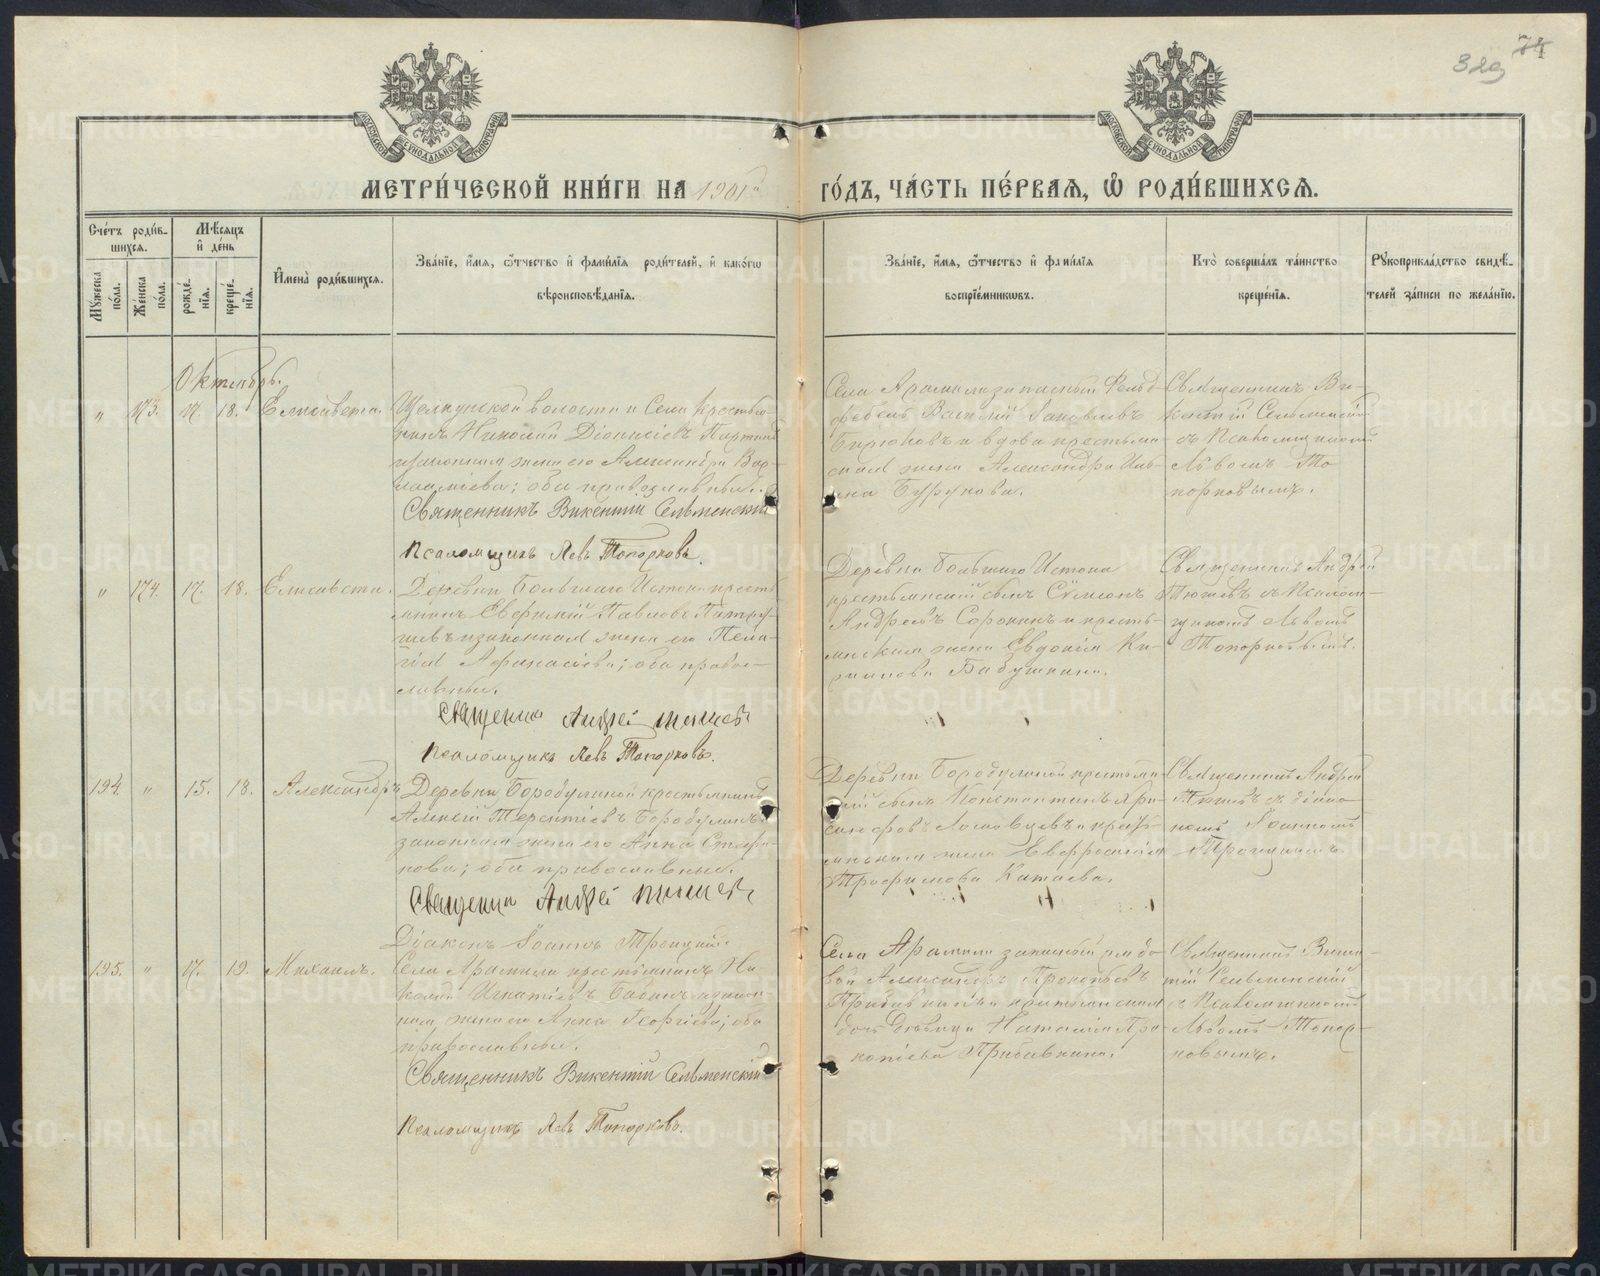 329 74
МОСКОВСКОЙ СѴНОДАЛЬНОЙ ТИПОГРАФІИ
МОСКОВСКОЙ СѴНОДАЛЬНОЙ ТИПОГРАФІИ
МЕТРИ́ЧЕСКОЙ КНИ́ГИ НА 1901й ГО́ДЪ, ЧА́СТЬ ПЕ́РВАЯ, Ѽ РОДИ́ВШИХСЯ.
Сче́тъ роди́в-
шихся.
Мꙋжеска по́ла.
Же́нска по́ла.
Мѣсяцъ
и де́нь
рожде́-
нія.
креще́-
нія.
Имена̀ роди́вшихся.
Зва́ніе, и́мя, ѻ́тчество и фами́лія роди́телей, и како́гѡ
вѣроисповѣ́данія.
Зва́ніе, и́мя, ѻ́тчество и фами́лія
воспріе́мникѡвъ.
Кто̀ соверша́лъ та́инство
креще́нія.
Рꙋкоприкла́дство свидѣ́-
телей за́писи по жела́нію.
Октябрь.
" 173. 17. 18. Елисавета.
Щелкунской волости и Села крестья-
нинъ Николай Діонисіевъ Партинъ
и законная жена его Александра Вар-
лаамиева; оба православные.
Священникъ Викентій Сельменскій
Псаломщикъ Левъ Топорковъ.
Села Арамили запасный Фельд-
фебель Василій Іаковлевъ
Бирюковъ и вдова крестьян-
ская жена Александра
Бурукова.
Священникъ Ви-
кентій Сельменскій
съ Псаломщикомъ
Львомъ То-
порковымъ.
" 174. 17. 18. Елисавета.
Деревни Большаго Истока кресть-
янинъ Евфимій Павловъ Патру-
шевъ и законная жена его Пела-
гія Афанасіева; оба право-
славные.
Священникъ Андрей
Псаломщикъ Левъ Топорковъ.
Деревни Большаго Истока
крестьянскій сынъ Сѵмеонъ
Андреевъ Сорокинъ и кресть-
янская жена Евдокія Ки-
рилова Бабушкина.
Священникъ Андрей
съ Псалом-
щикомъ Львомъ
Топорковымъ.
194. " 15. 18. Александръ
Деревни Бородулиной крестьянинъ
Алексій Терентіевъ Бородулинъ и
законная жена его Анна Стефа-
нова; оба православные.
Священникъ Андрей
Діаконъ Іоаннъ Троицкій.
Деревни Бородулиной крестьян-
скій сынъ Константинъ
и кресть-
янская жена Евфросинія
Трофимова Катаева.
Священникъ Андрей
съ діако-
номъ Іоанномъ
Троицкимъ.
195. " 17. 19. Михаилъ.
Села Арамили крестьянинъ Ни-
колай Игнатіевъ Бабинъ и закон-
ная жена его Анна Георгіева; оба
православные.
Священникъ Викентій Сельменскій
Псаломщикъ Левъ Топорковъ.
Села Арамили запасный рядо-
вой Александръ Прокопьевъ
Прибавкинъ и крестьянская
дочь дѣвица Наталія Про-
копіева Прибавкина.
Священникъ Викен-
тій Сельменскій
съ Псаломщикомъ
Львомъ Топор-
ковымъ.
METRIKI.GASO-URAL.RU